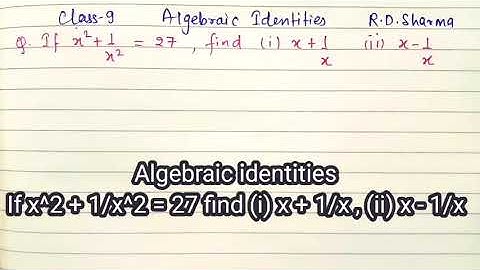 Class-9 Algebraic Identities R.D.Sharma
Q. If x² + 1/x² = 27 , find (i) x + 1/x (ii) x - 1/x
Algebraic identities
If x^2 + 1/x^2 = 27 find (i) x + 1/x , (ii) x - 1/x